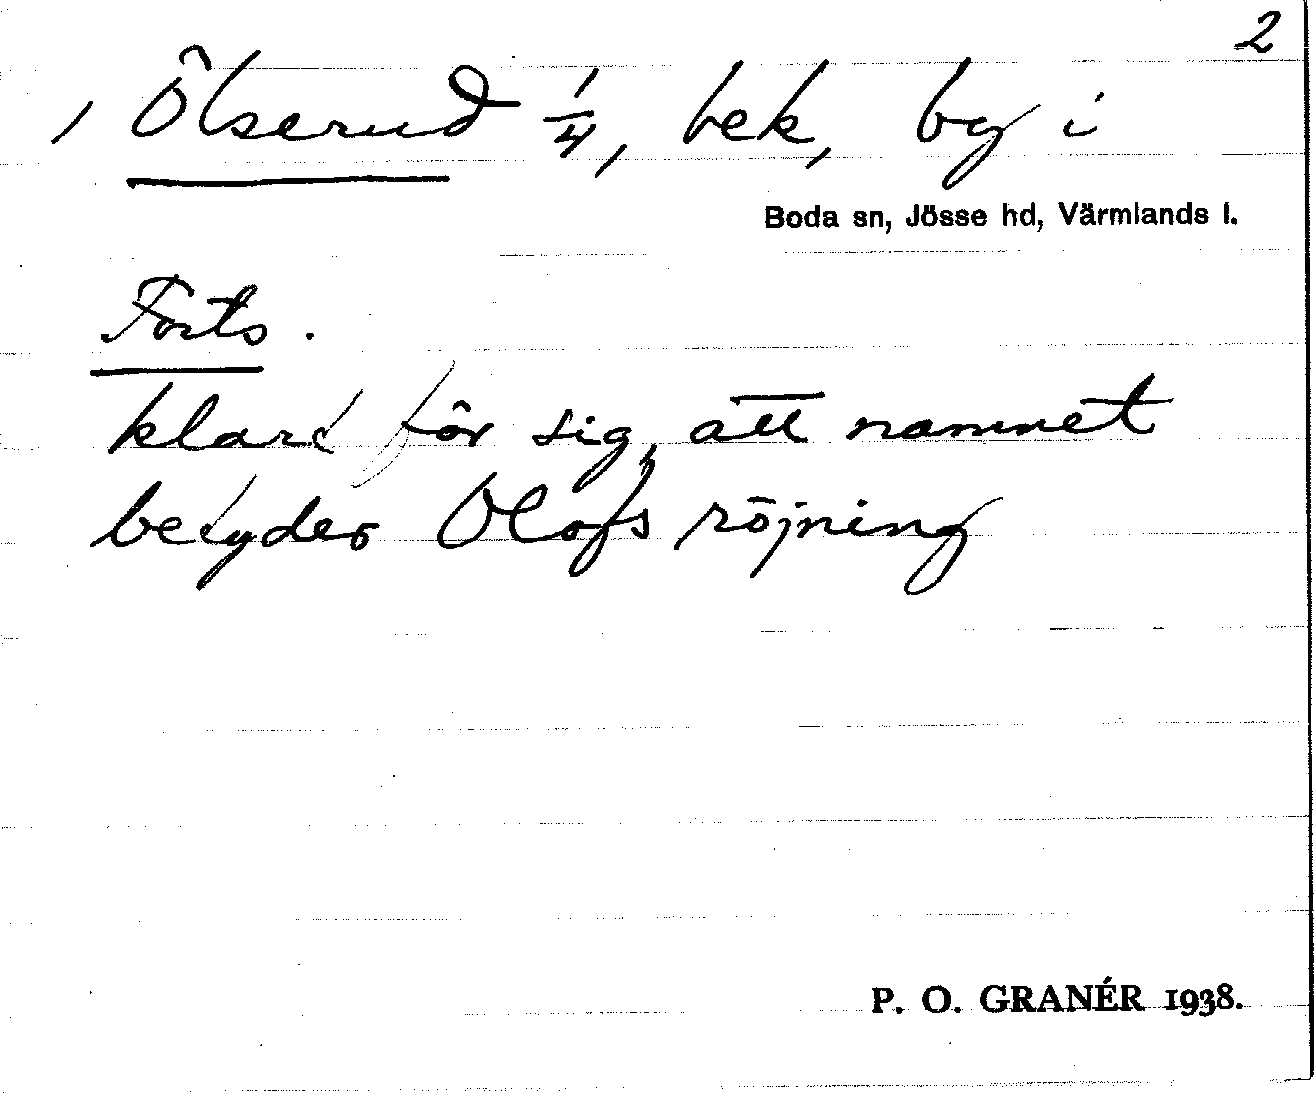 2
Ölserud 1/4, bek, by i
Boda sn, Jösse hd, Värmlands l.
Forts.
klart för sig, att namnet
betyder Olofs röjning
P. O. GRANÉR 1938.